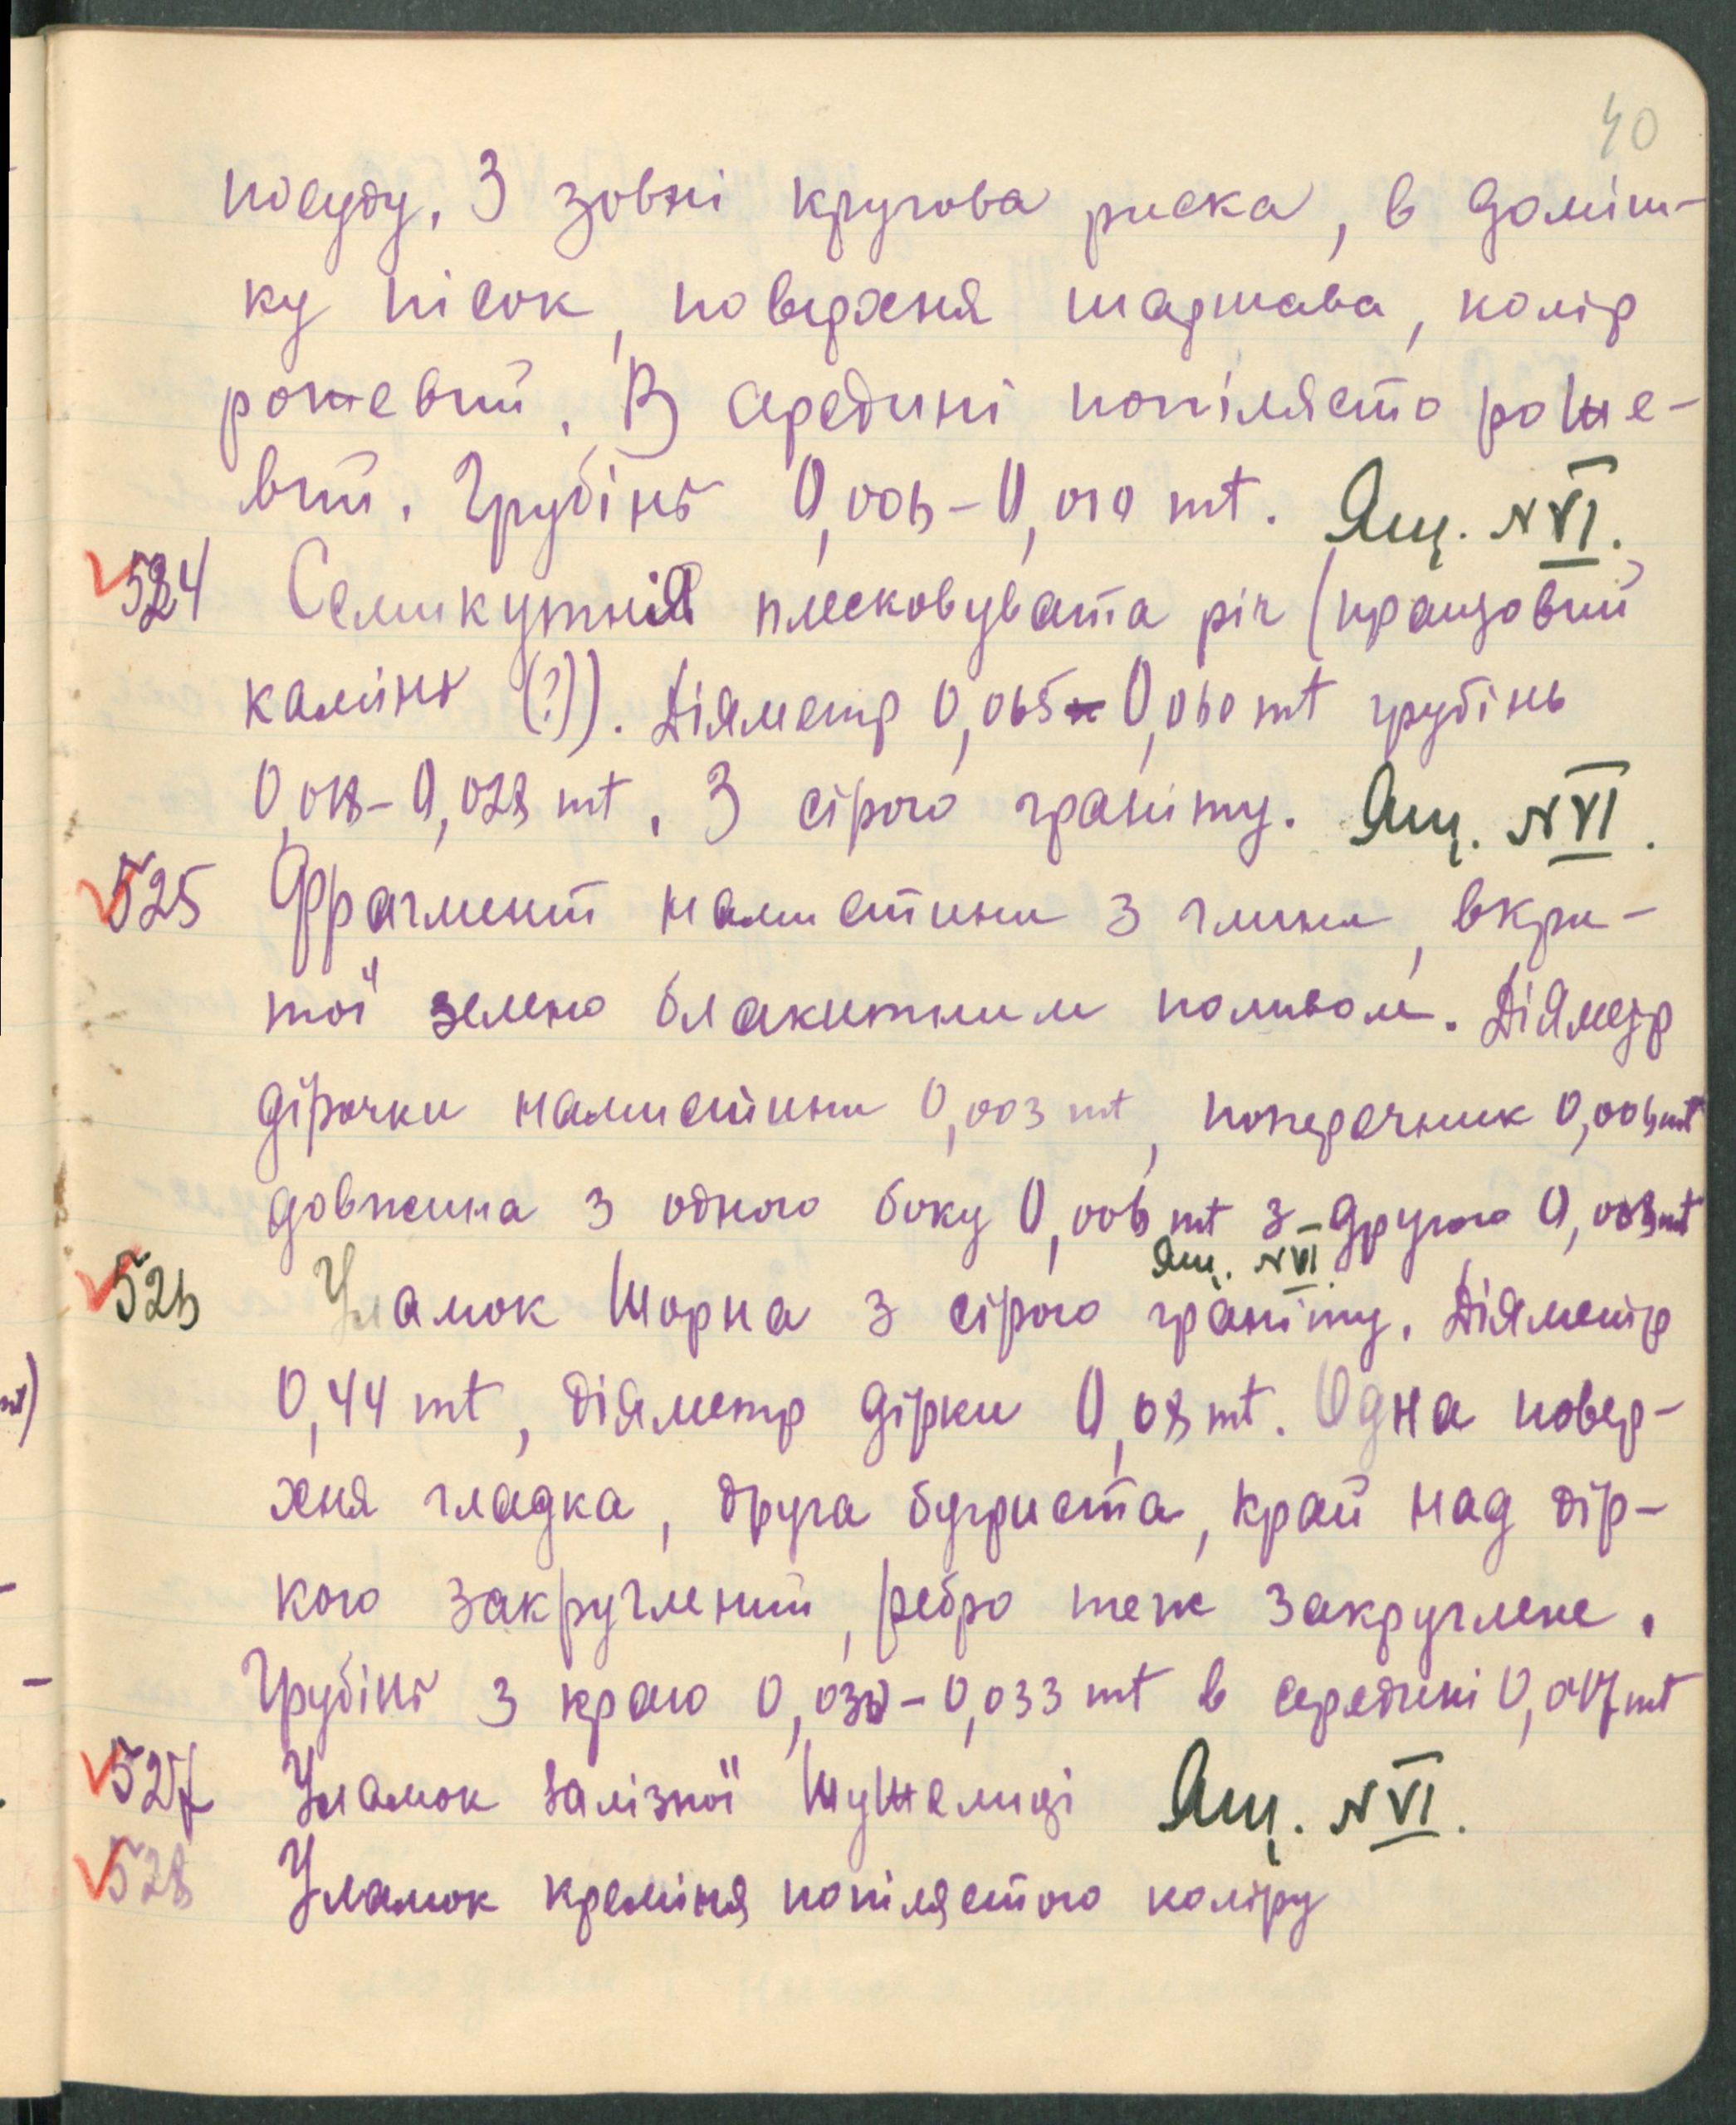 40
посуду. З зовні кругова риска, в доміш-
ку пісок, поверхня шаршава, колір
рожевий. В середині попілясто роже-
вий. Грубінь 0,006-0,010 mt. Ящ. N VI.
524 Семикутня плесковувата річ (пращовий
камінь (?)). Діяметр 0,065-0,060 mt грубінь
0,018-0,028 mt. З сірого граніту. Ящ. N VI.
525 Фрагмент намистини з глини, вкри-
тої зелено блакитним поливом. Діяметр
дірочки намистини 0,003 mt, поперечник 0,006 mt
довжина з одного боку 0,006 mt з-другого 0,003 mt
Ящ. N VI.
526 Уламок жорна з сірого граніту. Діяметр
0,44 mt, діяметр дірки 0,08 mt. Одна повер-
хня гладка, друга бугриста, край над дір-
кою закруглений, ребро теж закруглене.
Грубінь з краю 0,030-0,033 mt в середині 0,017 mt
527 Уламок залізної жужелиці Ящ. N VI.
528 Уламок кременя попілястого коліру